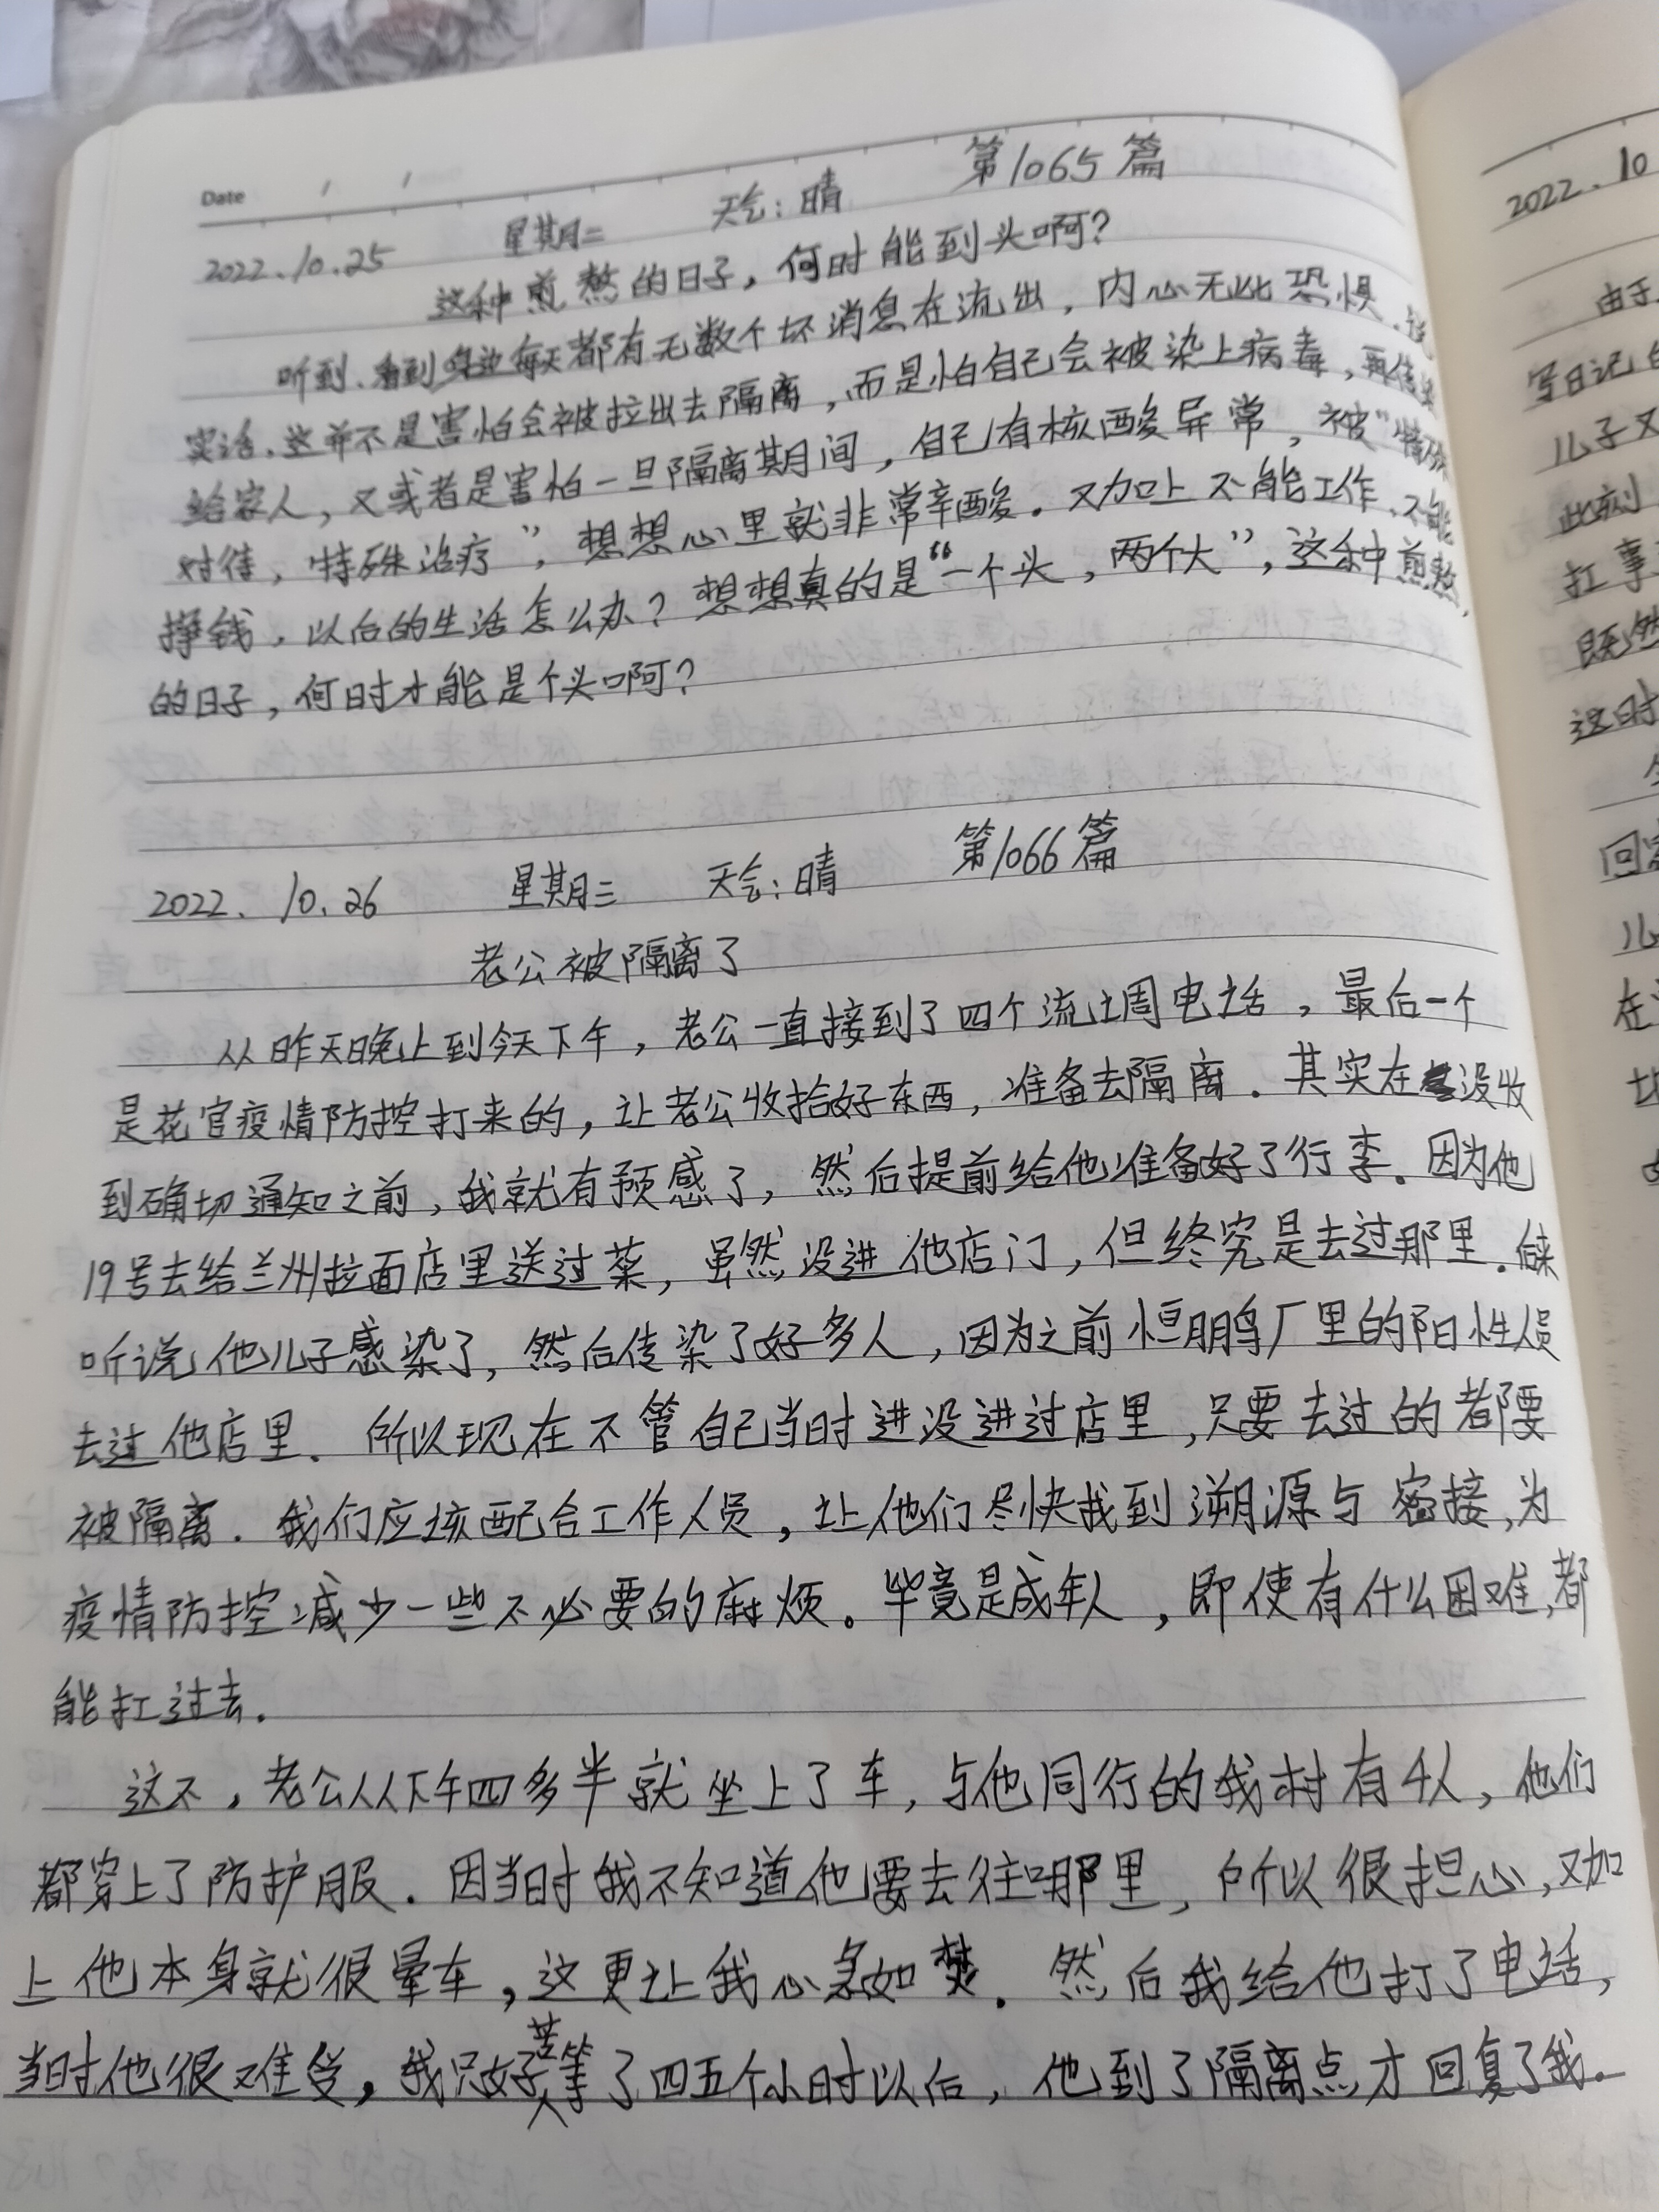 第1065篇
Date / /
2022.10.25 星期二 天气:晴
这种煎熬的日子，何时能到头啊？
听到、看到身边每天都有无数个坏消息在流出，内心无比恐惧、说
实话，这并不是害怕会被拉出去隔离，而是怕自己会被染上病毒，再传染
给家人，又或者是害怕一旦隔离期间，自己有核酸异常，被“特殊
对待，特殊治疗”，想想心里就非常辛酸。又加上不能工作、不能
挣钱，以后的生活怎么办？想想真的是“一个头，两个大”，这种煎熬
的日子，何时才能是个头啊？
第1066篇
2022.10.26 星期三 天气:晴
老公被隔离了
从昨天晚上到今天下午，老公一直接到了四个流调电话，最后一个
是花官疫情防控打来的，让老公收拾好东西，准备去隔离．其实在没收
到确切通知之前，我就有预感了，然后提前给他准备好了行李．因为他
19号去给兰州拉面店里送过菜，虽然没进他店门，但终究是去过那里．
听说他儿子感染了，然后传染了好多人，因为之前恒鹏鸟厂里的阳性人员
去过他店里．所以现在不管自己当时进没进过店里，只要去过的都要
被隔离．我们应该配合工作人员，让他们尽快找到溯源与密接，为
疫情防控减少一些不必要的麻烦。毕竟是成年人，即使有什么困难，都
能扛过去．
这不，老公从下午四多半就坐上了车，与他同行的我村有4人，他们
都穿上了防护服．因当时我不知道他要去往哪里，所以很担心，又加
上他本身就很晕车，这更让我心急如焚．然后我给他打了电话，
当时他很难受，我只好苦等了四五个小时以后，他到了隔离点才回复了我．
2022.10
由于
写日记
儿子又
此刻
扛事
既然
这时
回家
儿
在